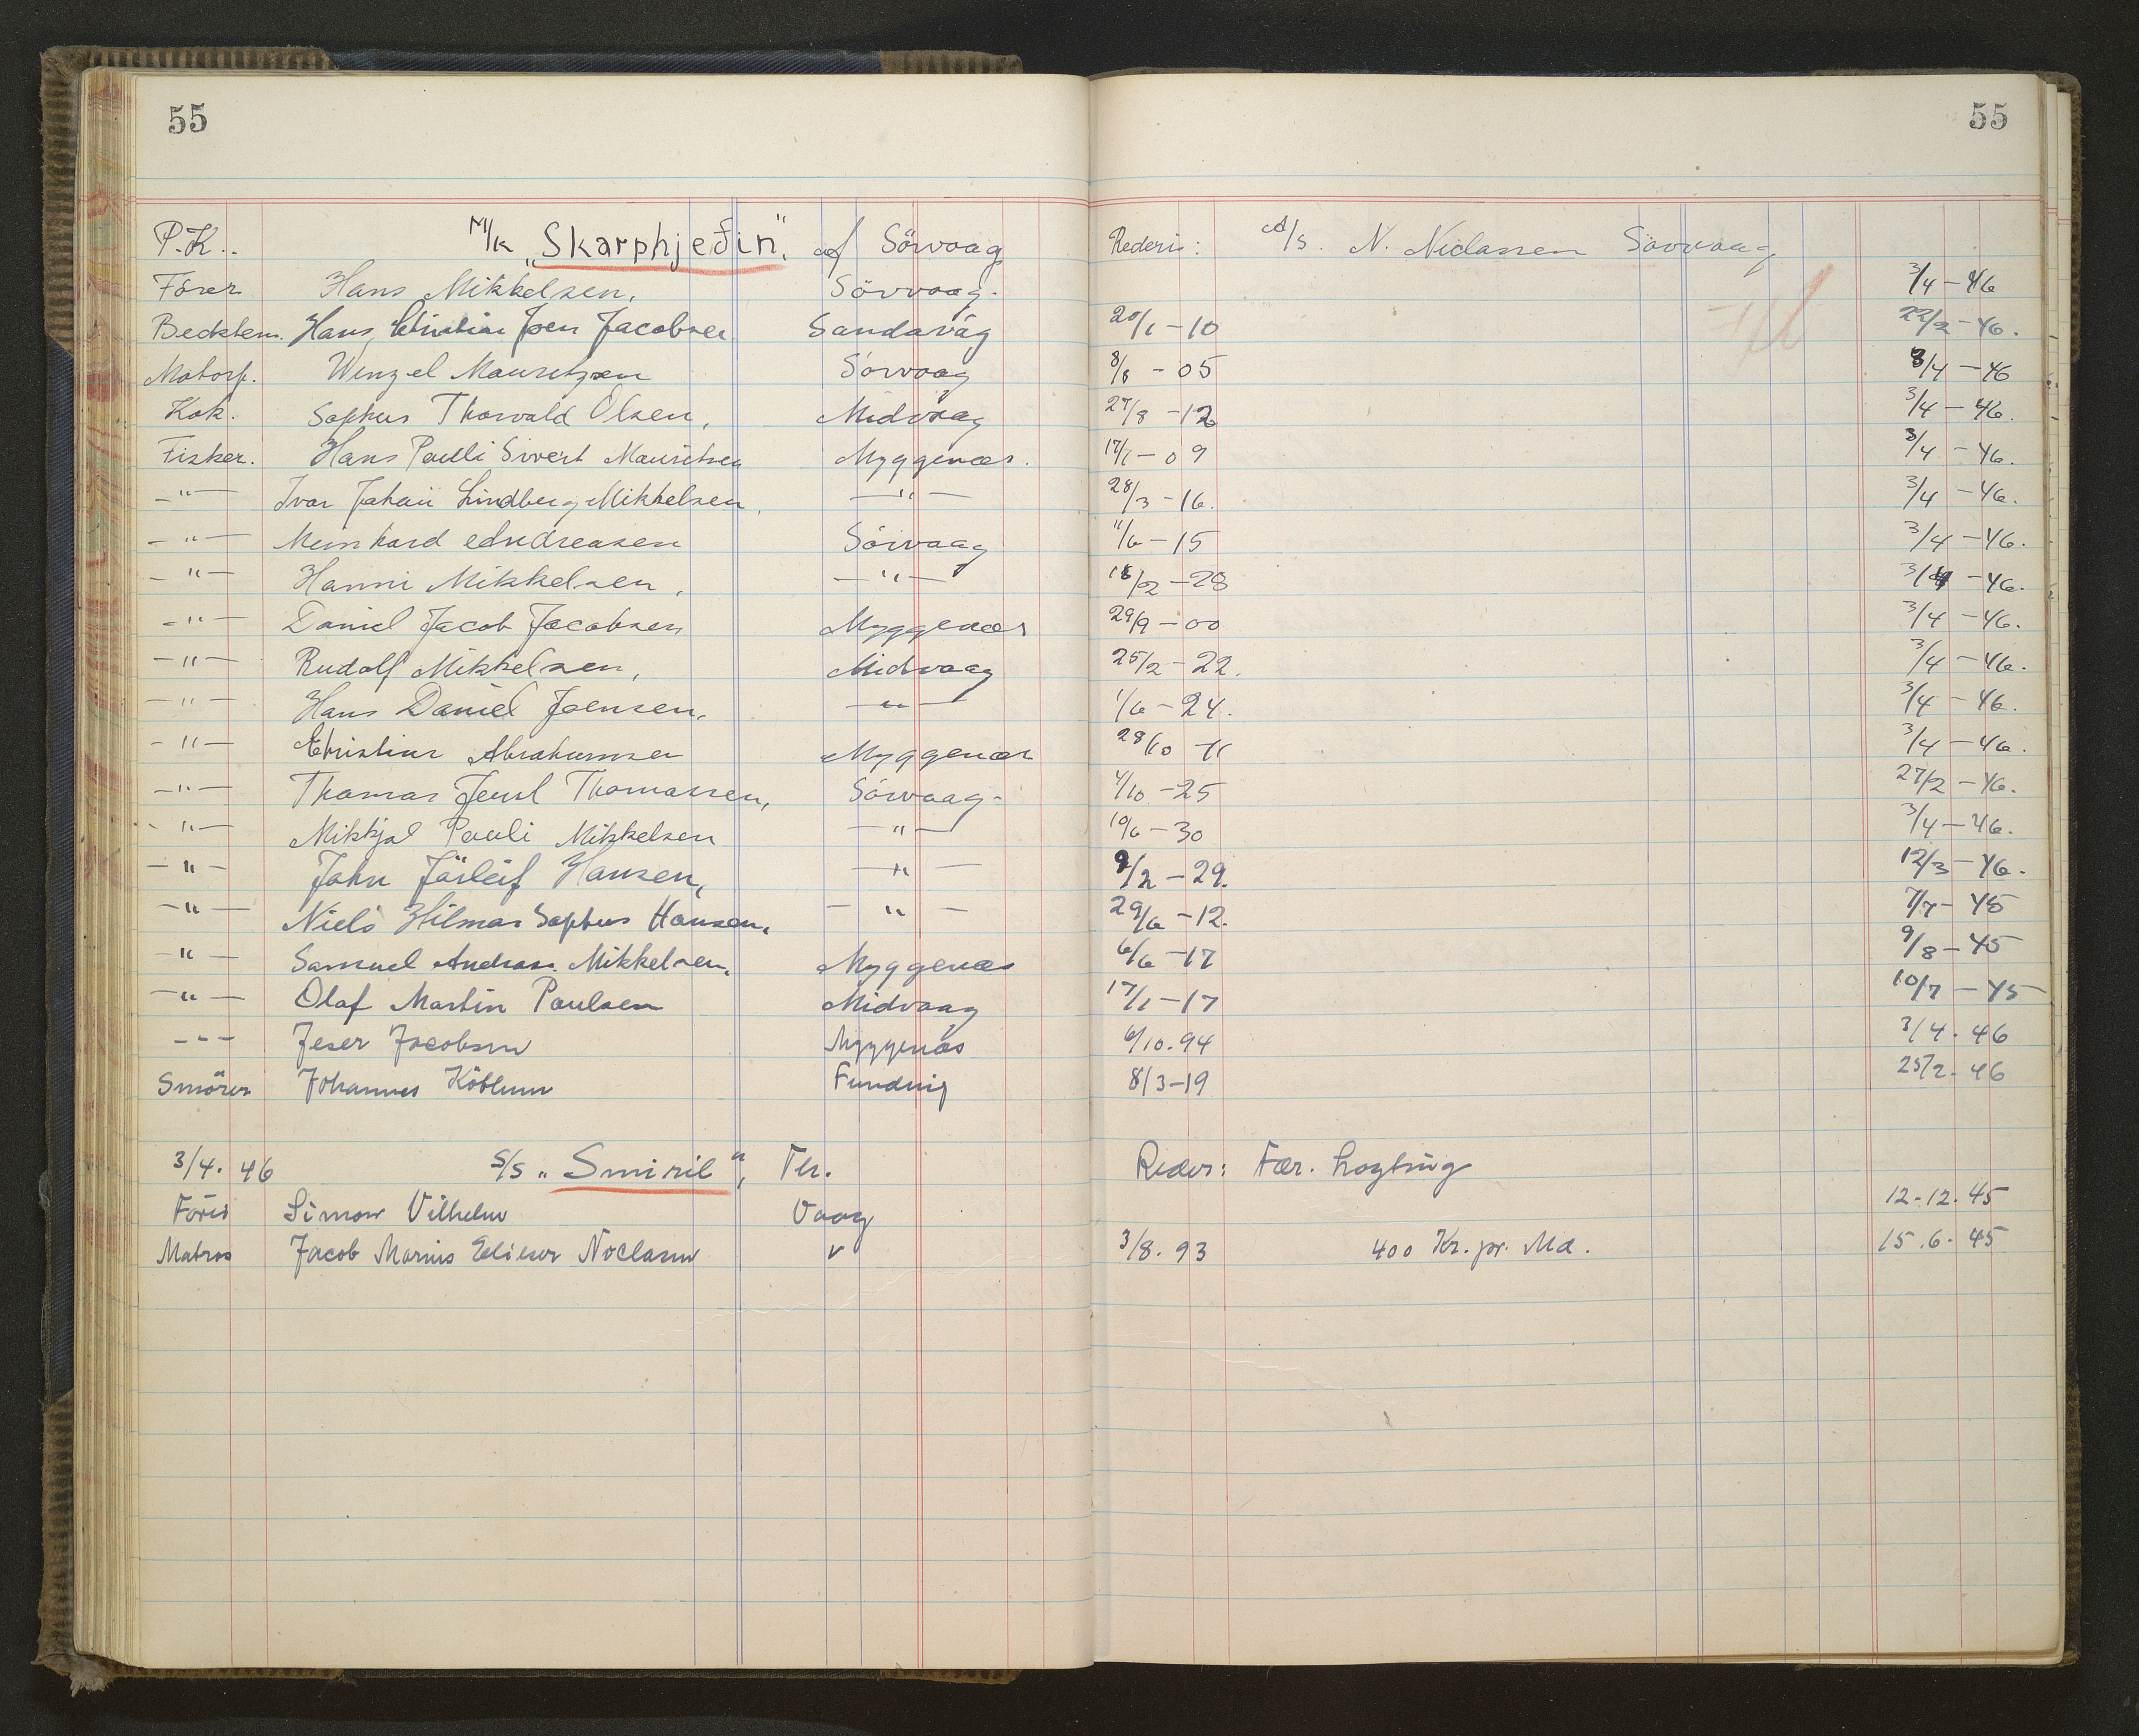 55 55
P.K.. M/k „Skarphjeðin" af Sörvaag Rederi: A/S. N. Niclassen Sörvaag
Förer Hans Mikkelsen, Sörvaag. 3/4 - 46
Bedstem. Hans Christian Joen Jacobsen Sandavåg 20/1 - 10 22/2 - 46.
Motorp. Wenzel Mauritzen Sörvaag 8/8 - 05 3/4 - 46
Kok. Sophus Thorvald Olsen, Midvaag 27/8 - 12 3/4 - 46.
Fisker. Hans Pauli Sivert Mauritsen Myggenæs. 17/1 - 09 3/4 - 46.
-"- Ivar Johan Lindberg Mikkelsen, -"- 28/3 - 16. 3/4 - 46.
-"- Meinhard Andreasen Sörvaag 11/6 - 15 3/4 - 46.
-"- Hanni Mikkelsen, -"- 18/2 - 28 3/4 - 46.
-"- Daniel Jacob Jacobsen Myggenæs 29/9 - 00 3/4 - 46.
-"- Rudolf Mikkelsen, Midvaag 25/2 - 22. 3/4 - 46.
-"- Hans Daniel Joensen, -"- 1/6 - 24. 3/4 - 46.
-"- Christian Abrahamsen Myggenæs 28/10 - 11 3/4 - 46.
-"- Thomas Thomassen, Sörvaag- 4/10 - 25 27/2 - 46.
-"- Mikkjal Pauli Mikkelsen -"- 10/6 - 30 3/4 - 46.
-"- John Jörleif Hansen, -"- 9/2 - 29. 12/3 - 46.
-"- Niels Hilmar Sophus Hansen, -"- 29/6 - 12. 7/7 - 45
-"- Samuel Andreas Mikkelsen, Myggenæs 6/6 - 17 9/8 - 45
-"- Olaf Martin Paulsen Midvaag 17/1 - 17 10/7 - 45
--- Jacobsen Myggenæs 6/10. 94 3/4. 46
Smörer Johannes Funding 8/3 - 19 25/2. 46
3/4. 46 S/S „Smiril", Th. Reder: Fær. Lagting
Förer Simon Vilhelm Vaag 12-12. 45
Matros Jacob Marius Elieser Noclasen v 3/8. 93 400 Kr. pr. Md. 15.6. 45